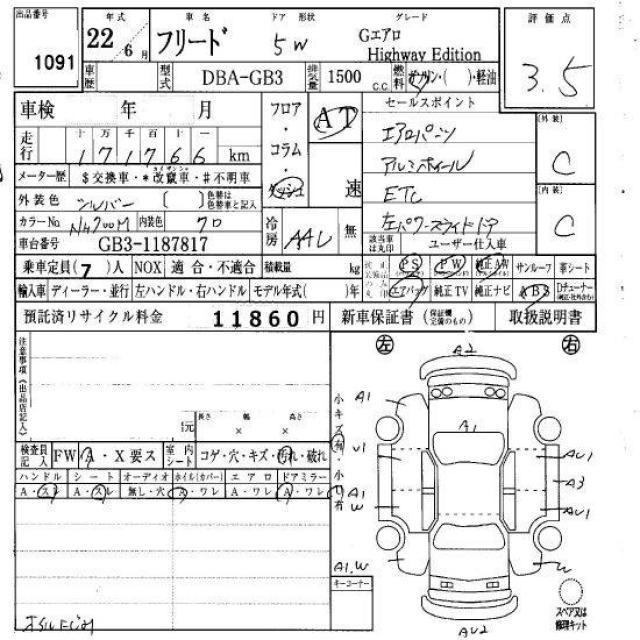 出品番号 1091
年式 22年 6月
車名 フリード
ドア 形状 5W
グレード Gエアロ
Highway Edition
評価点 3.5
車歴
型式 DBA-GB3
排気量 1500 C.C.
燃料 ガソリン・( )・軽油
車検 年 月
フロア・コラム・ダッシュ
AT
速
セールスポイント
エアロパーツ
アルミホイール
ETC
左パワースライドドア
[外装] C
[内装] C
走行 十 万 千 百 十 一
171766 km
メーター歴 $交換車・*改竄車・#不明車
外装色 シルバー ( ) 色替は色替車と記入
カラーNo NH700M 内装色 クロ
車台番号 GB3-1187817
冷房 AAC 無
該当車は丸印 ユーザー仕入車
乗車定員(7)人 NOX 適合・不適合 積載量 kg
PS PW 純正AW サンルーフ 革シート
輸入車 ディーラー・並行 左ハンドル・右ハンドル モデル年式( )年
エアバッグ 純正TV 純正ナビ ABS Dチューナー
預託済リサイクル料金 11860 円
新車保証書(保証欄定改のもの) 取扱説明書
注意事項(出品店記入)
長さ 幅 高さ
× ×
検査員記入 FW A・X要ス 室内シート コゲ・穴・キズ・汚れ・破れ
ハンドル シート オーディオ ホイル(カバー) エアロ ドアミラー
A・スレ A・スレ 無し・穴 A・ワレ A・ワレ A・ワレ
オイルにじみ
左 右
小キズ有 小凹有
A2
A1
A1
U1
A1
W
A1.W
AU1
A3
AU1
W
AU2
キーコーナー
スペア又は修理キット